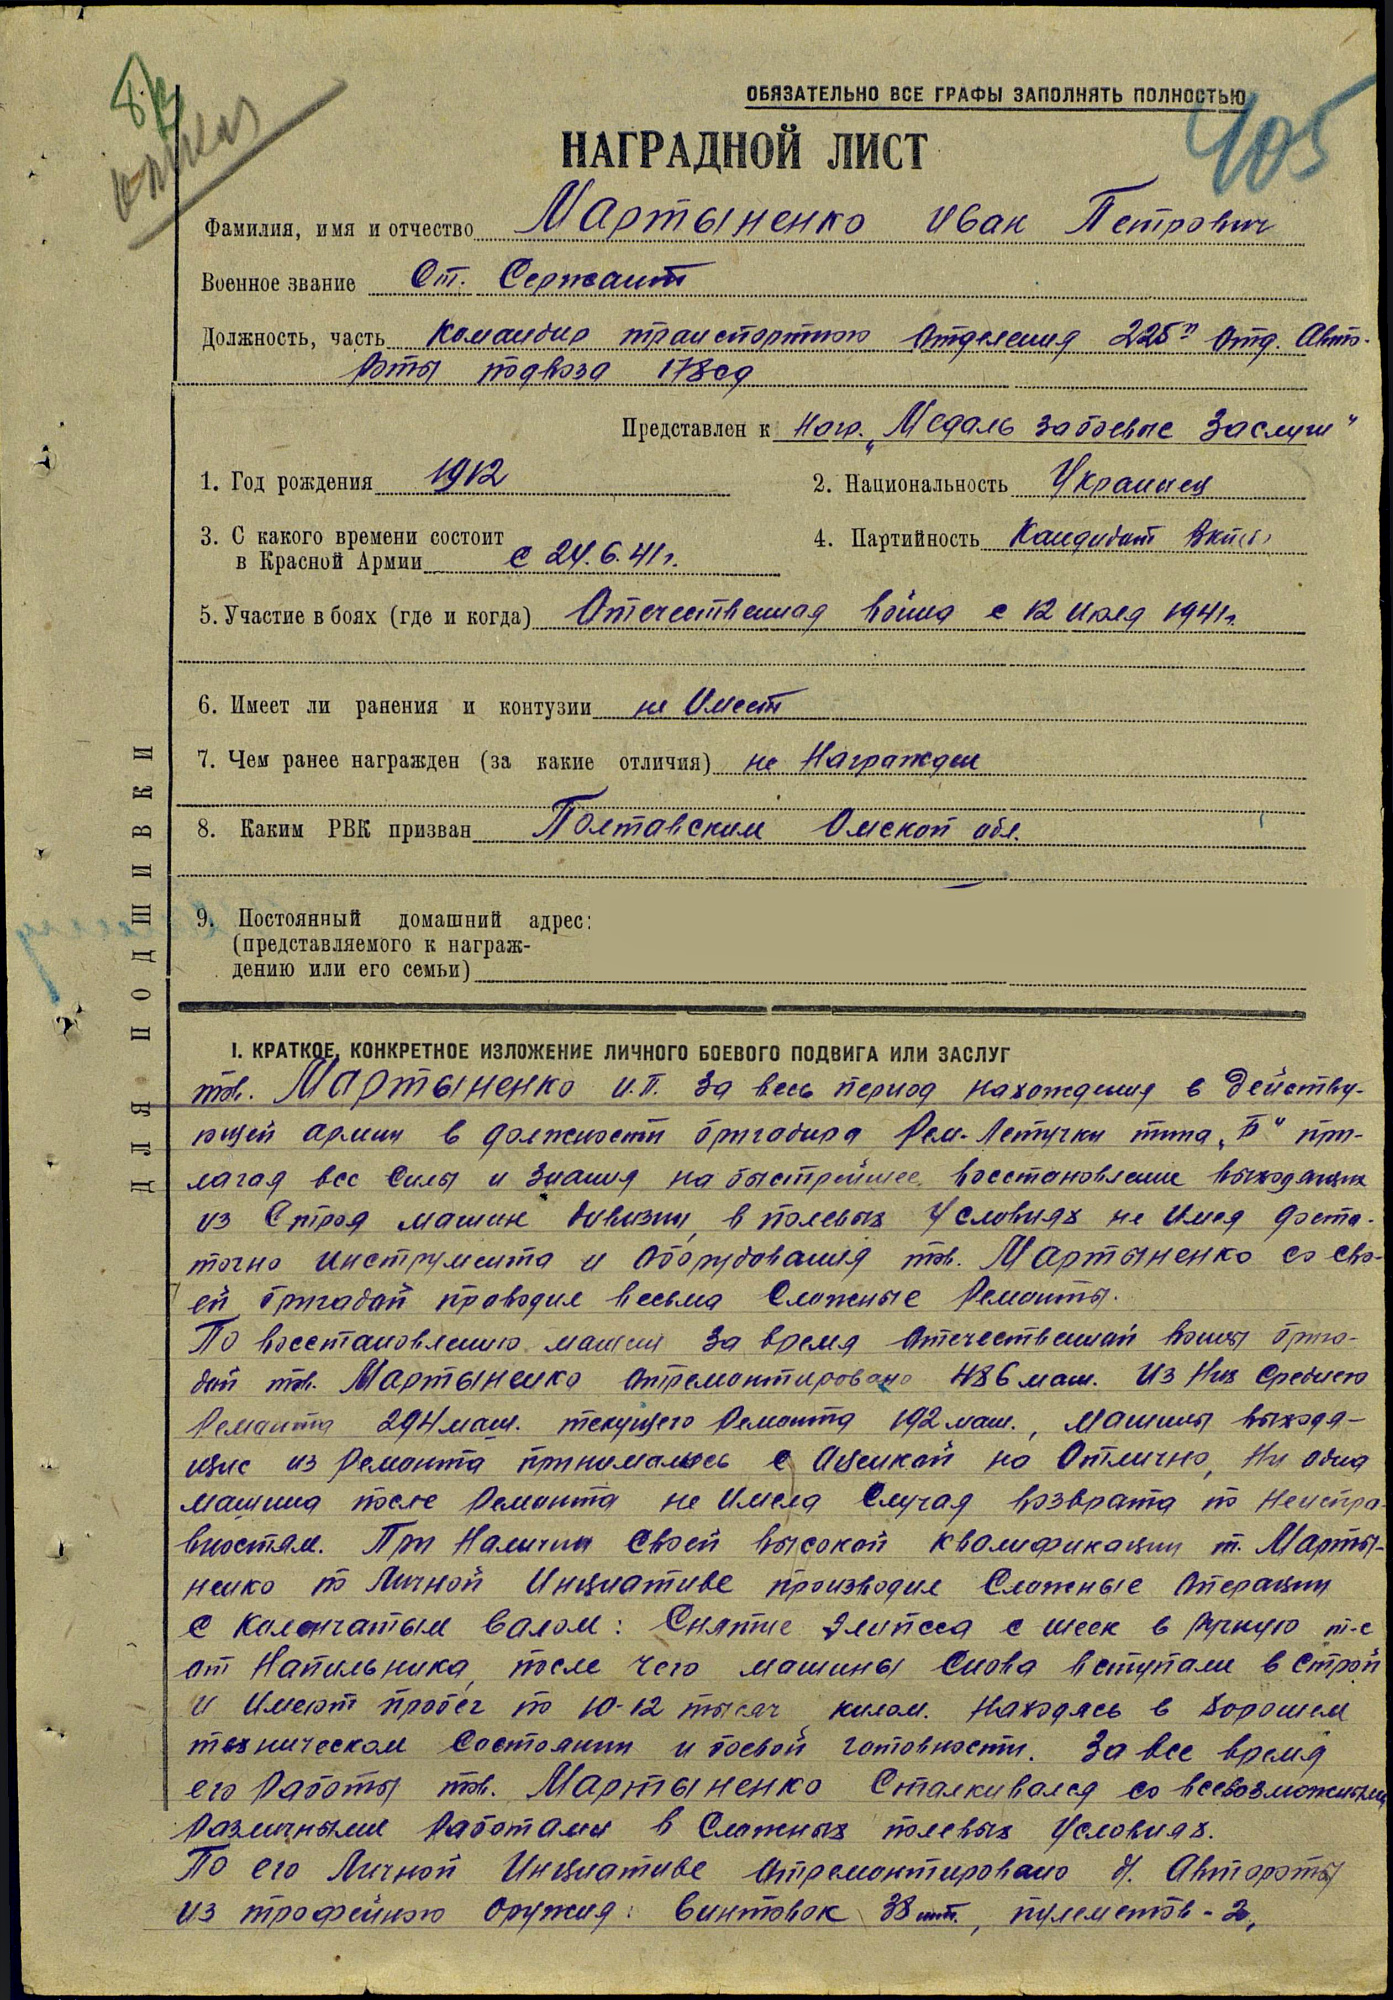 ОБЯЗАТЕЛЬНО ВСЕ ГРАФЫ ЗАПОЛНЯТЬ ПОЛНОСТЬЮ
405
НАГРАДНОЙ ЛИСТ
Фамилия, имя и отчество Мартыненко Иван Петрович
Военное звание Ст. Сержант
Должность, часть Командир транспортного Отделения 225й Отд. Авто-
Роты подвоза 178сд
Представлен к Нагр. „Медаль за боевые Заслуги"
1. Год рождения 1912
2. Национальность Украинец
3. С какого времени состоит
в Красной Армии с 24.6.41г.
4. Партийность Кандидат ВКП(б)
5. Участие в боях (где и когда) Отечественная война с 12 Июля 1941г.
6. Имеет ли ранения и контузии не Имеет
7. Чем ранее награжден (за какие отличия) не Награжден
8. Каким РВК призван Полтавским Омской обл.
9. Постоянный домашний адрес:
(представляемого к награж-
дению или его семьи)
ДЛЯ ПОДШИВКИ
I. КРАТКОЕ, КОНКРЕТНОЕ ИЗЛОЖЕНИЕ ЛИЧНОГО БОЕВОГО ПОДВИГА ИЛИ ЗАСЛУГ
тов. Мартыненко И.П. За весь период нахождения в Действу-
ющей армии в должности бригадира Рем-Летучки типа „Б" при-
лагая все Силы и Знания на быстрейшее восстановление выходящих
из Строя машин дивизии, в полевых Условиях не Имея доста-
точно Инструмента и Оборудования тов. Мартыненко со сво-
ей бригадой проводил весьма Сложные Ремонты.
По восстановлению машин За время Отечественной войны брига-
дой тов. Мартыненко Отремонтировано 486 маш. Из Них Среднего
Ремонта 294 маш. текущего Ремонта 192 маш., Машины выходя-
щие из Ремонта принимались с Оценкой на Отлично, Ни одна
машина после Ремонта не Имела Случая возврата по Неиспра-
вностям. При Наличии Своей высокой квалификации т. Марты-
ненко по Личной Инциативе производил Сложные Операции
с Коленчатым валом: Снятие Элипсса с шеек в Ручную т-е
от Напильника, после чего машины Снова вступали в строй
и Имеют пробег по 10-12 тысяч килом. Находясь в Хорошем
техническом Состоянии и боевой готовности. За все время
его Работы тов. Мартыненко Сталкивался со всевозможными
Различными Работами в Сложных полевых Условиях.
По его Личной Инциативе Отремонтировано д/ Автороты
из трофейного оружия: винтовок 38 шт., пулеметов - 2,